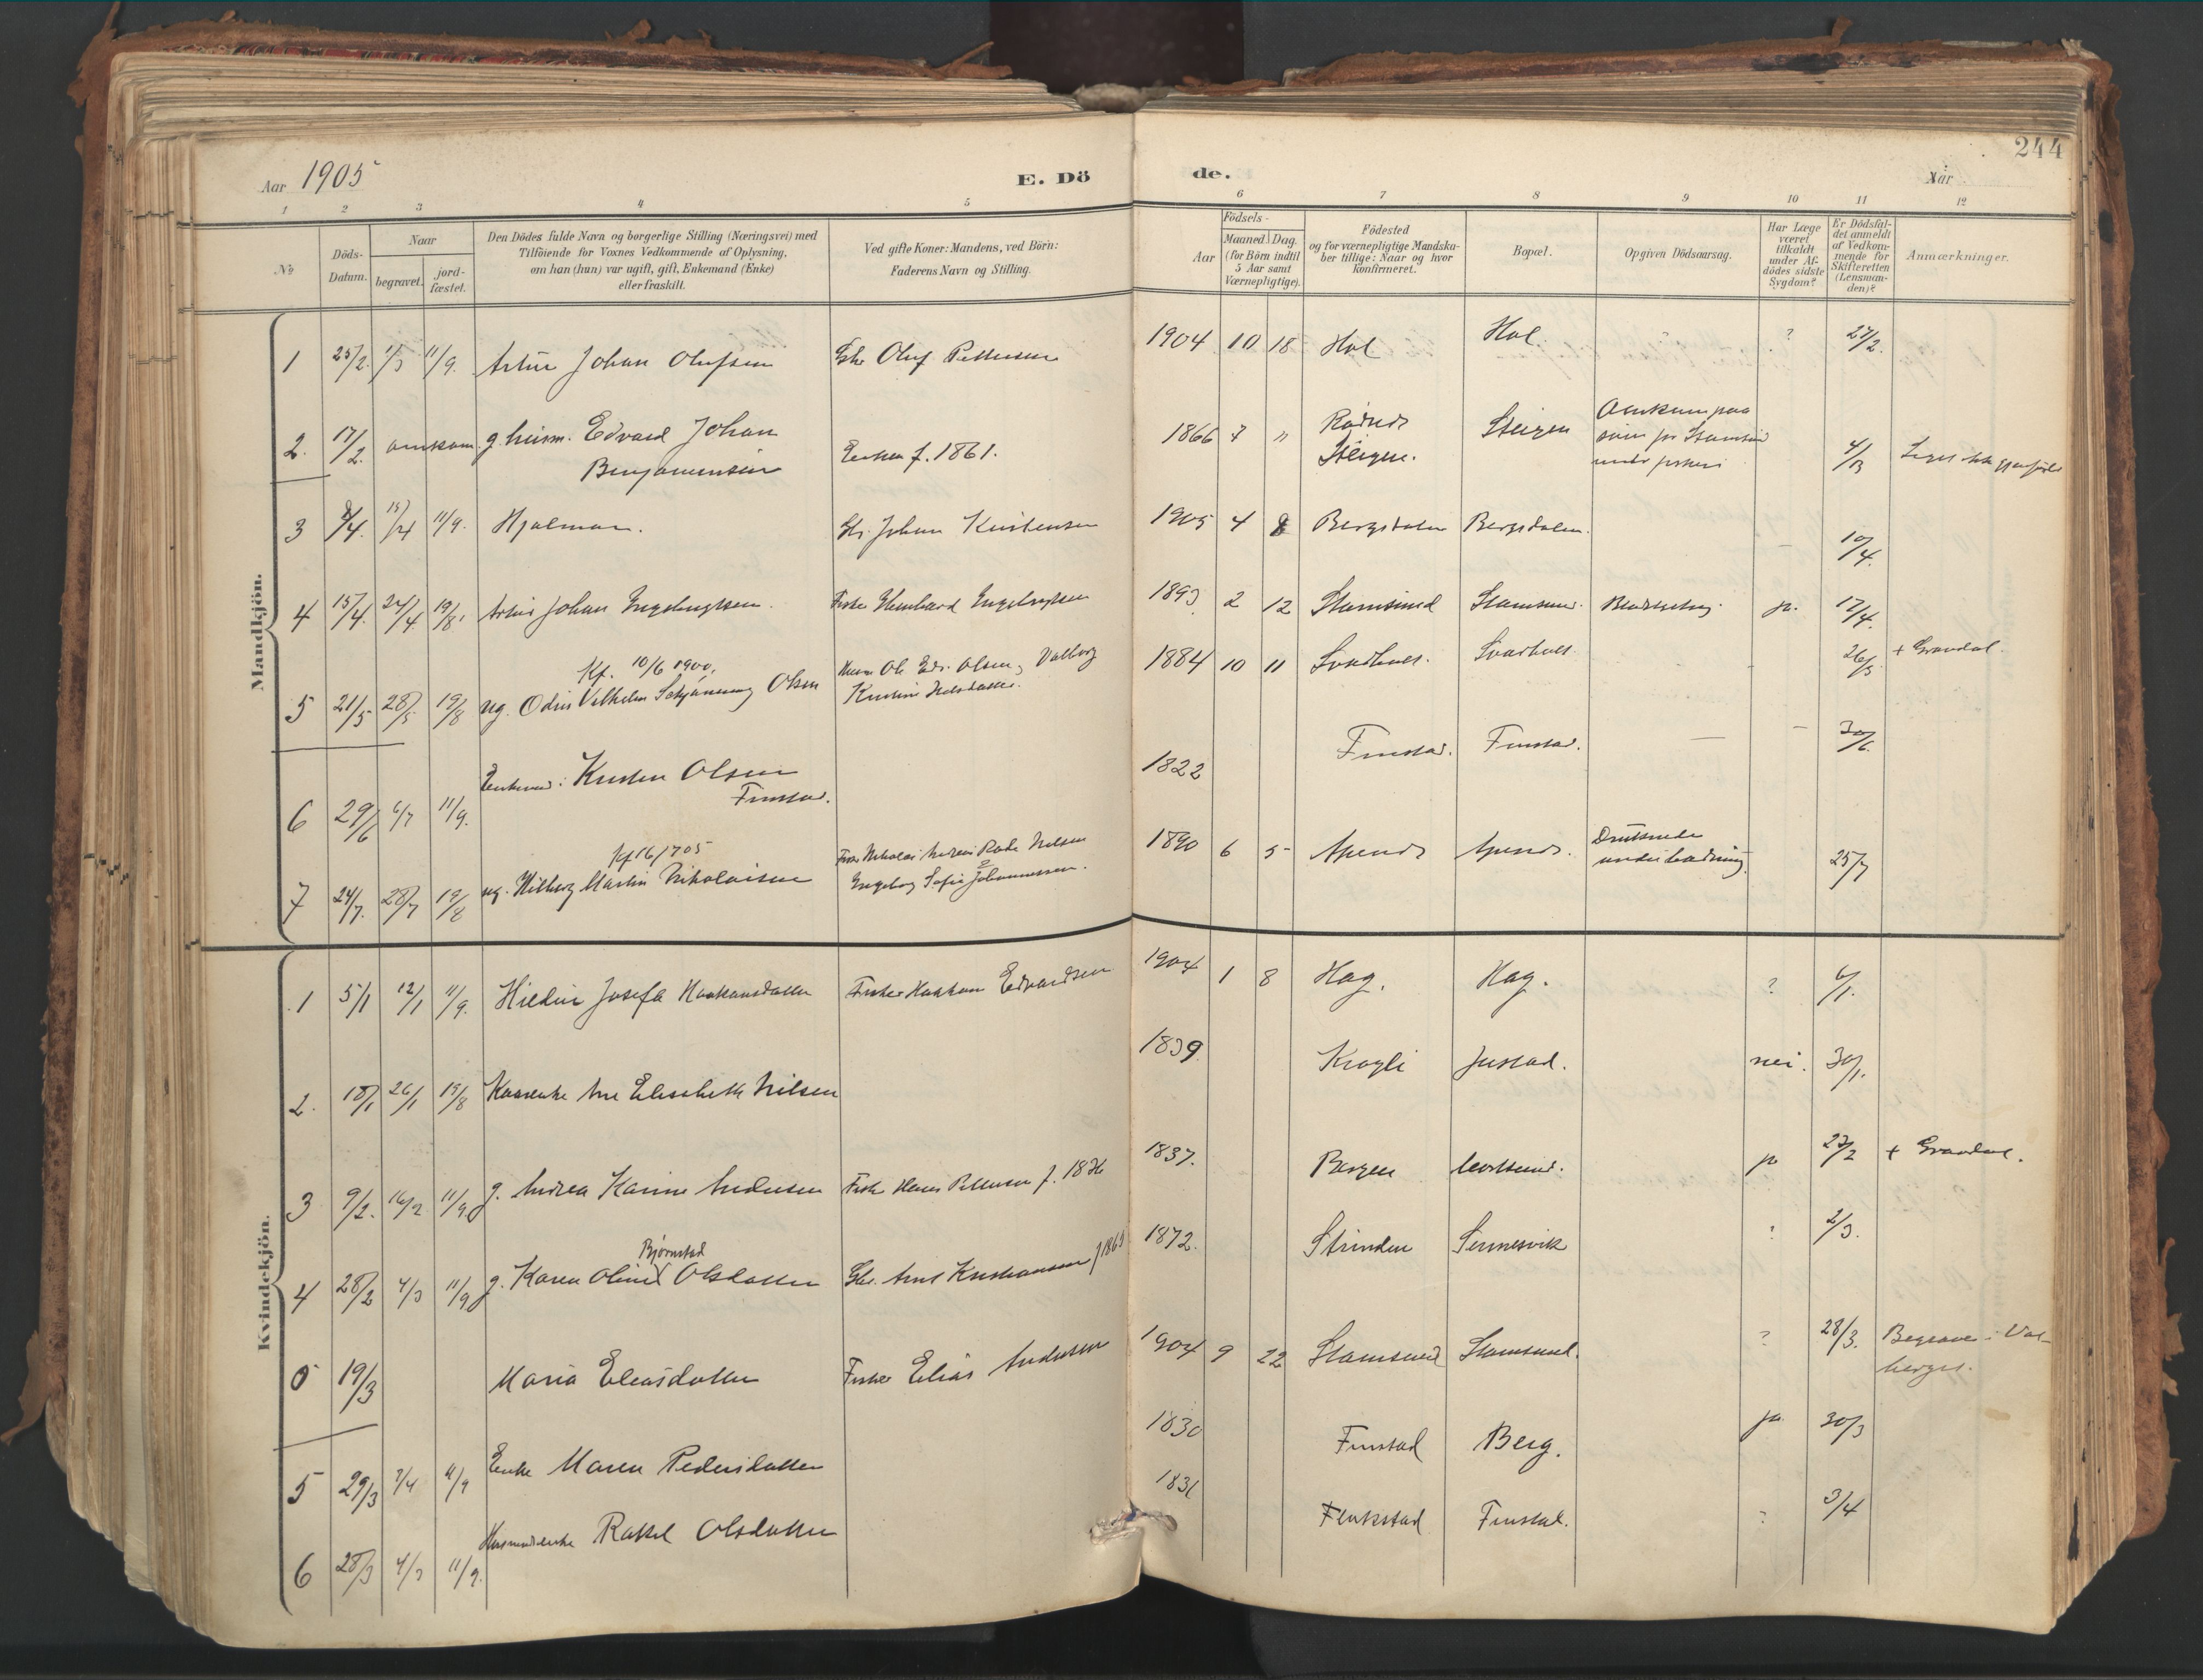 244
Aar 1905
E. Döde.
Aar
1 2 3 4 5 6 7 8 9 10 11 12
№
Döds-Datum.
Naar
begravet.
jord-fæstet.
Den Dödes fulde Navn og borgerlige Stilling (Næringsvei) med
Tilföiende for Voxnes Vedkommende af Oplysning,
om han (hun) var ugift, gift, Enkemand (Enke)
eller fraskilt.
Ved gifte Koner: Mandens, ved Börn:
Faderens Navn og Stilling.
Födsels-
Aar
Maaned. Dag.
(for Börn indtil
5 Aar samt
Værnepligtige).
Födested
og for værnepligtige Mandska-
ber tillige: Naar og hvor
Konfirmeret.
Bopæl.
Opgiven Dödsaarsag.
Har Læge
været
tilkaldt
under Af-
dödes sidste
Sygdom?
Er Dödsfal-
det anmeldt
af Vedkom-
mende for
Skifteretten
(Lensman-
den)?
Anmærkninger.
Mandkjön.
1 25/2 1/3 11/9. Artur Johan Olufsen Oluf Pettersen 1904 10 18 Hol Hol. ? 27/2.
2. 17/2. omkom. g. husm. Edvard Johan
Benjaminsen f. 1861. 1866 7 " Steigen. Steigen
Omkom paa
under fiskeri 4/3
3 8/4. 15/4 11/9. Hjalmar. Johan Kristensen 1905 4 8 Bergsdalen Bergsdalen. — 10/4.
4 15/4. 24/4. 19/8. Artur Johan Engebrigtsen. Fisker Engebrigtsen 1893 2 12 Stamsund Stamsund. ja. 17/4.
Kf. 10/6 1900.
5 21/5 28/5 19/8 ug. Odin Vilhelm Olsen Ole Edv. Olsen, Valborg
Kristine 1884 10 11 Svarholt. Svarholt 26/5. + Gravdal.
6 29/6 6/7 11/9. Enkem.: Kristen Olsen
Finstad. 1822 Finstad. Finstad. — — 30/6
Kf 16/7 05
7 24/7. 28/7 19/8 ug. Hilberg Martin Nikolaisen Fisker Nikolai Andreas Nilsen
Engeborg Sofie Johannessen. 1890 6 5 Druknede
under badning. 25/7
Kvindekjön.
1 5/1 12/1 11/9. Josefa Haakonsdatter Fisker Haakon Edvardsen 1904 1 8 Hag. Hag. ? 6/1.
2. 18/1 26/1 19/8 Ane Elisabeth Nilsen 1839 Kragli Justad. nei. 30/1.
3 9/2. 16/2 11/9. g. Andrea Karine Andersen Fisker Hans Pettersen f. 1836 1837. Bergen ja 27/2 + Gravdal.
Bjørnstad
4 28/2 4/3 11/9 g. Karen Oline Olsdatter Arnt Kristiansen f 1865 1872. Strinden Sennesvik ? 2/3.
0 19/3 Maria Eliasdatter Fisker Elias Andersen 1904 9 22 Stamsund Stamsund. ? 28/3. Begravet i Val-
berget.
5 29/3 7/4 11/9 Enke Maren Pedersdatter 1830 Finstad Berg. ja. 30/3
6 28/3 4/3 11/9. Husmandsenke Rakel Olsdatter 1831 Flakstad Finstad. ? 3/4